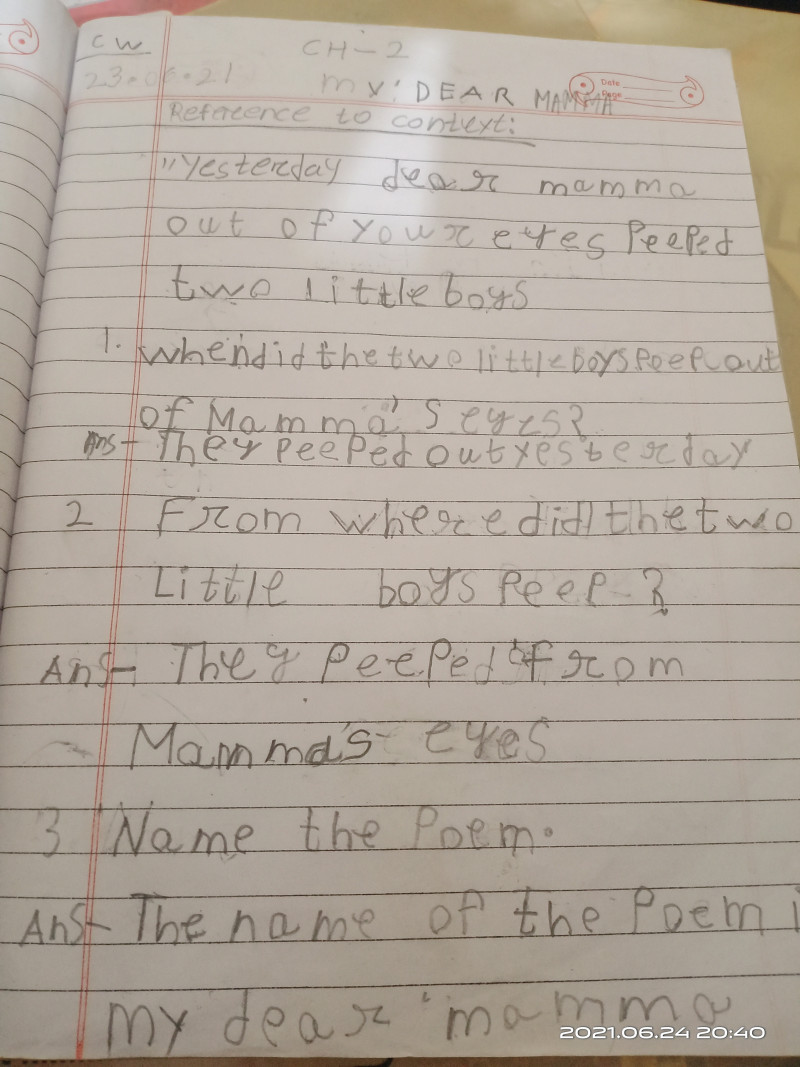 CW
CH-2
23.06.21
MY DEAR MAMMA
Date
Page
Reference to context:
"Yesterday dear mamma
out of your eyes Peeped
two little boys
1. when did the two little boys Peep out
of Mamma's eyes?
Ans- They Peeped out yesterday
2 From where did the two
Little boys Peep ?
Ans- They Peeped from
Mamma's eyes
3 Name the Poem.
Ans- The name of the Poem i
My dear mamma
2021.06.24 20:40